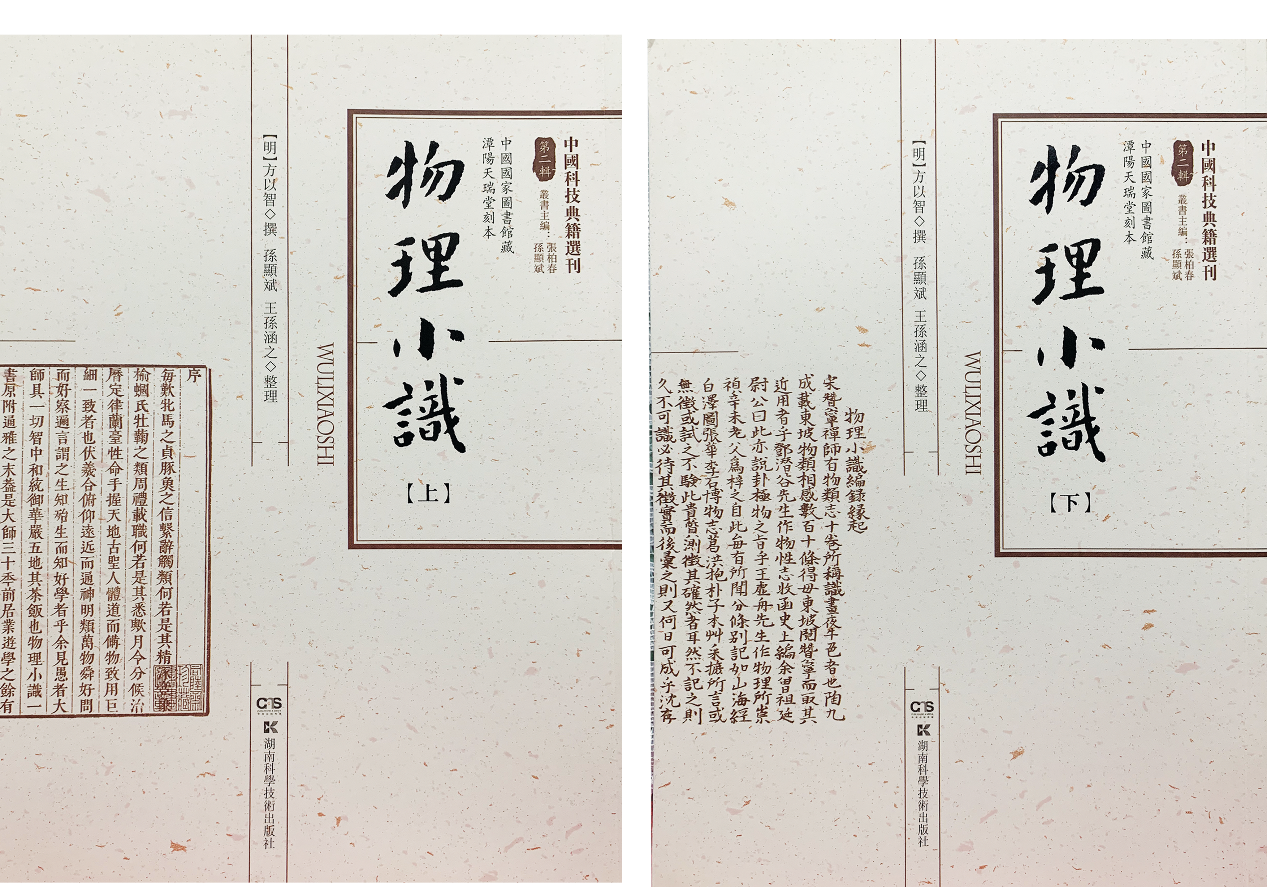 中國科技典籍選刊
第二輯
叢書主編：張柏春
孫顯斌
中國國家圖書館藏
潭陽天瑞堂刻本
物理小識
【上】
WULIXIAOSHI
【明】方以智◇撰 孫顯斌 王孫涵之◇整理
CNS
湖南科學技術出版社
序
每歎牝馬之貞豚魚之信繫辭觸類何若是其精
榆蟈氏牡蘜之類周禮載職何若是其悉歟月令分候治
曆定律蘭臺性命手握天地古聖人體道而備物致用巨
細一致者也伏羲合俯仰遠近而通神明類萬物舜好問
而好察邇言謂之生知殆生而知好學者乎余見愚者大
師具一切智中和統御華嚴五地其茶飯也物理小識一
書原附通雅之末蓋是大師三十季前居業遊學之餘有
中國科技典籍選刊
第二輯
叢書主編：張柏春
孫顯斌
中國國家圖書館藏
潭陽天瑞堂刻本
物理小識
【下】
WULIXIAOSHI
【明】方以智◇撰 孫顯斌 王孫涵之◇整理
CNS
湖南科學技術出版社
物理小識編錄緣起
宋贊寧禪師有物類志十卷所稱識晝夜牛色者也陶九
成載東坡物類相感數百十條得毋東坡閱贊寧而取其
近用者乎鄧潛谷先生作物性志收函史上編余曾祖廷
尉公曰此亦說卦極物之旨乎王虛舟先生作物理所崇
禎辛未老父為梓之自此每有所聞分條別記如山海經
白澤圖張華李石博物志葛洪抱朴子本艸采摭所言或
無徵或試之不驗此貴質測徵其確然者耳然不記之則
久不可識必待其徵實而後彙之則又何日可成乎沈存